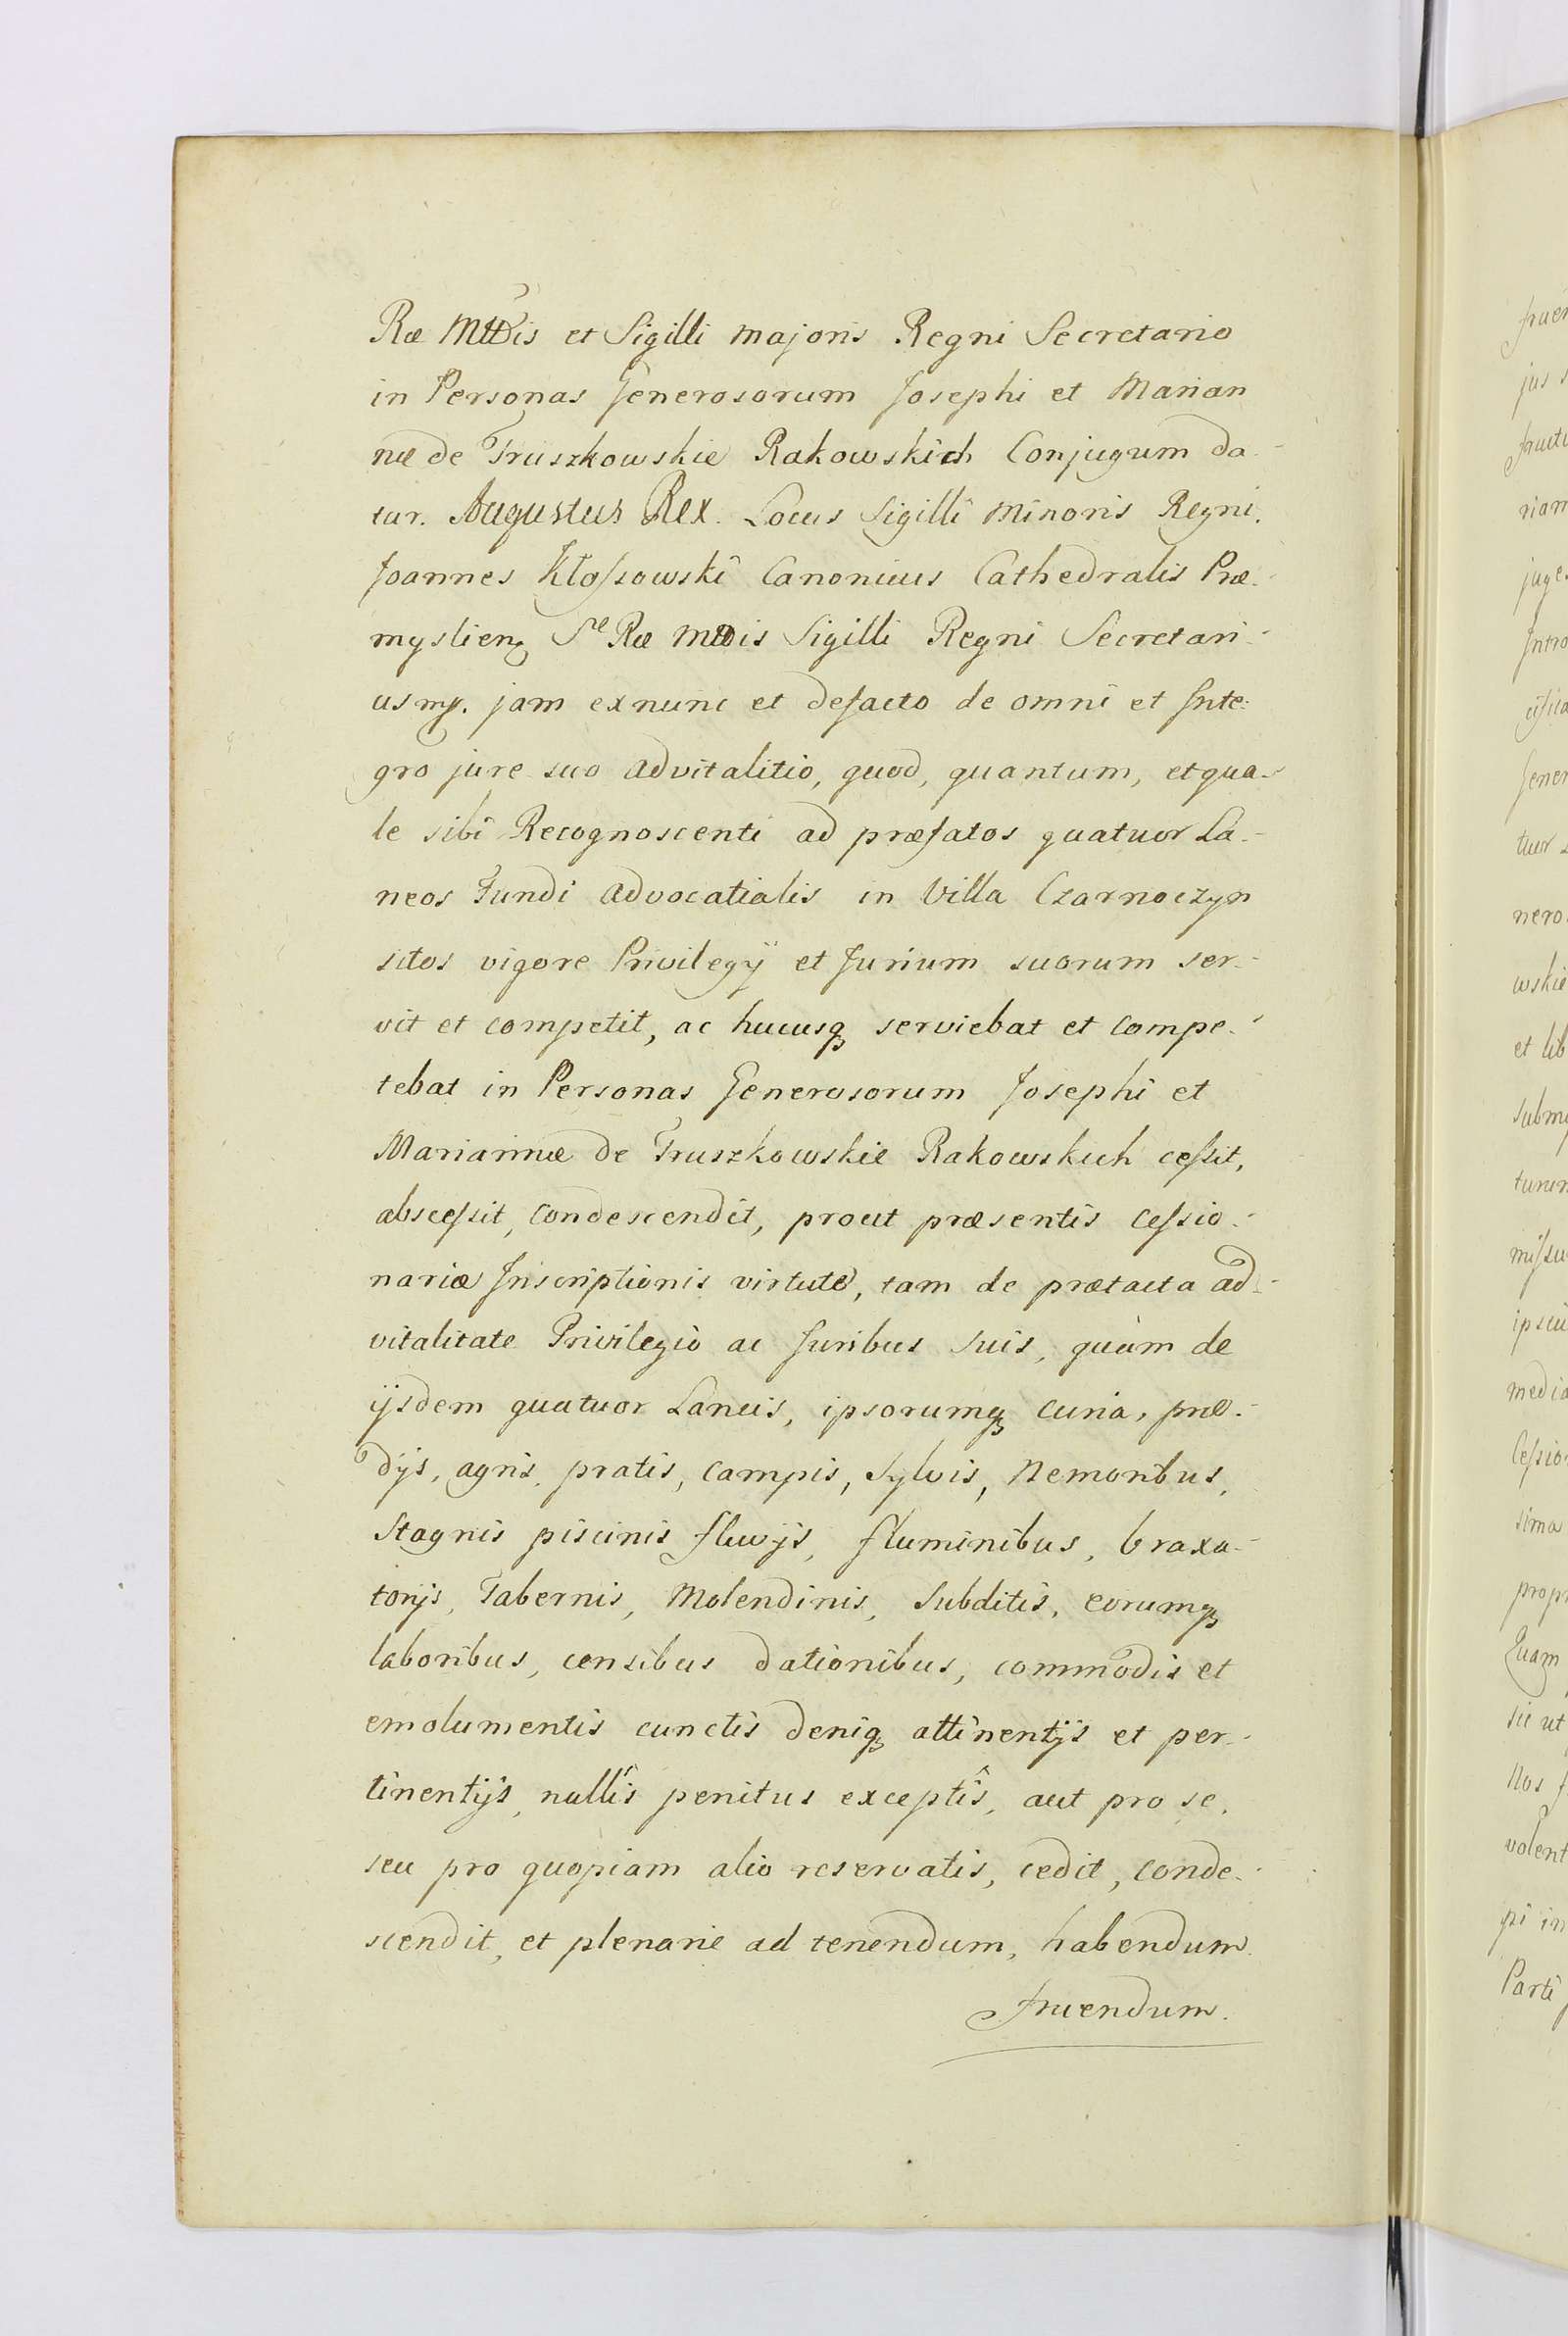 Ræ Mttis et Sigilli Majoris Regni Secretario
in Personas Generosorum Josephi et Marian
næ de Truszkowskie Rakowskich Conjugum da-
tur. Augustus Rex. Locus Sigilli Minoris Regni.
Joannes Kłoſsowski Canonicus Cathedralis Præ-
mysliens Sæ Ræ Mttis Sigilli Regni Secretari-
us mp. jam exnunc et defacto de omni et Inte-
gro jure suo advitalitio, quod, quantum, et qua-
le sibi Recognoscenti ad præfatos quatuor La-
neos Fundi advocatialis in Villa Czarnoczyn
sitos vigore Privilegÿ et Jurium suorum ser-
vit et competit, ac hucusq serviebat et Compe-
tebat in Personas Generosorum Josephi et
Mariannæ de Truszkowskie Rakowskich ceſsit,
absceſsit, Condescendit, prout præsentis Ceſsio-
nariæ Inscriptionis virtute, tam de prætacta ad-
vitalitate Privilegio ac Juribus suis, quàm de
ijsdem quatuor Laneis, ipsorumq Curia, præ-
dijs, agris, pratis, Campis, Sylvis, Nemoribus,
Stagnis piscinis fluvijs, fluminibus, braxa-
torijs, Tabernis, Molendinis, Subditis, eorumq
laboribus, censibus dationibus, commodis et
emolumentis cunctis deniq attinentijs et per-
tinentijs, nullis penitus exceptis, aut pro se,
seu pro quopiam alio reservatis, cedit, Conde-
scendit, et plenarie ad tenendum, habendum
fruendum.